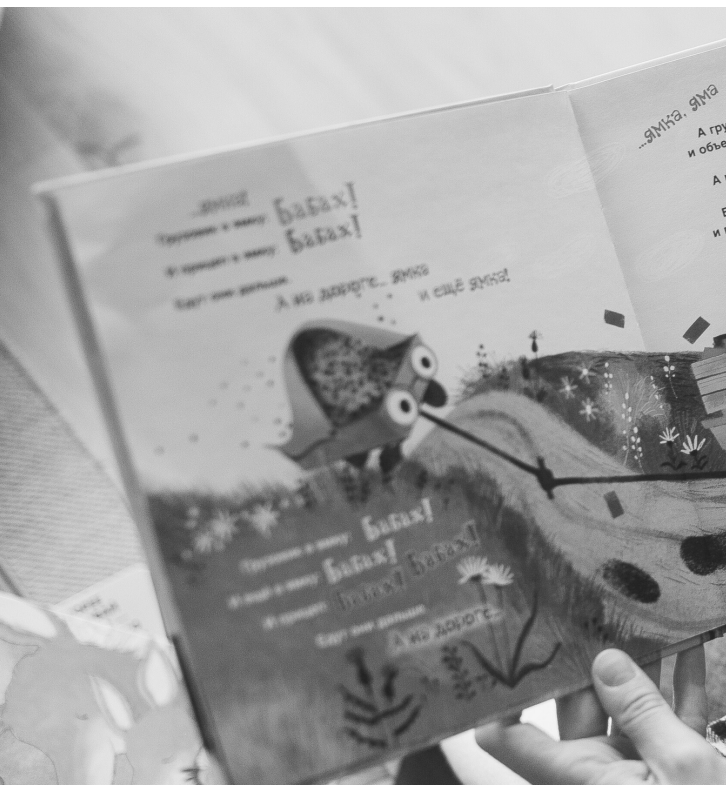 ...ямка!
Грузовик в ямку: Бабах!
И прицеп в ямку: Бабах!
Едут они дальше.
А на дороге... ямка
и ещё ямка!
Грузовик в ямку: Бабах!
И ещё в ямку: Бабах!
И прицеп: Бабах! Бабах!
Едут они дальше.
А на дороге...
...ямка, яма
А
и
А
и